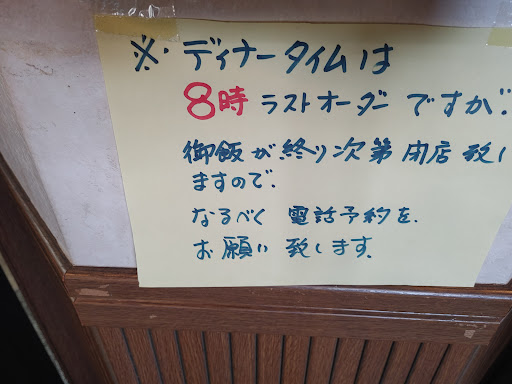 ※ ディナータイムは
8時 ラストオーダーですが、
御飯が終り次第閉店致し
ますので、
なるべく 電話予約を、
お願い致します。